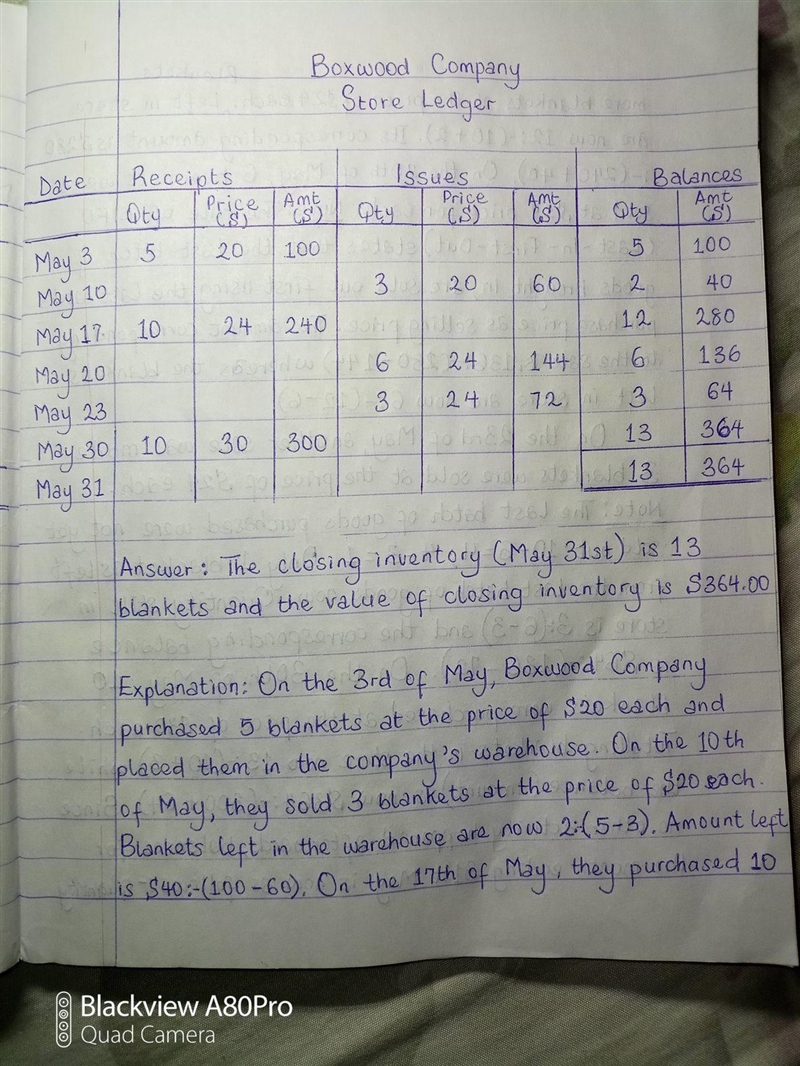 Boxwood Company
Store Ledger
Date Receipts Issues Balances
Qty Price ($) Amt ($) Qty Price ($) Amt ($) Qty Amt ($)
May 3 5 20 100 5 100
May 10 3 20 60 2 40
May 17 10 24 240 12 280
May 20 6 24 144 6 136
May 23 3 24 72 3 64
May 30 10 30 300 13 364
May 31 13 364
Answer: The closing inventory (May 31st) is 13
blankets and the value of closing inventory is $364.00
Explanation: On the 3rd of May, Boxwood Company
purchased 5 blankets at the price of $20 each and
placed them in the company's warehouse. On the 10th
of May, they sold 3 blankets at the price of $20 each.
Blankets left in the warehouse are now 2:-(5-3). Amount left
is $40:-(100-60). On the 17th of May, they purchased 10
Blackview A80Pro
Quad Camera